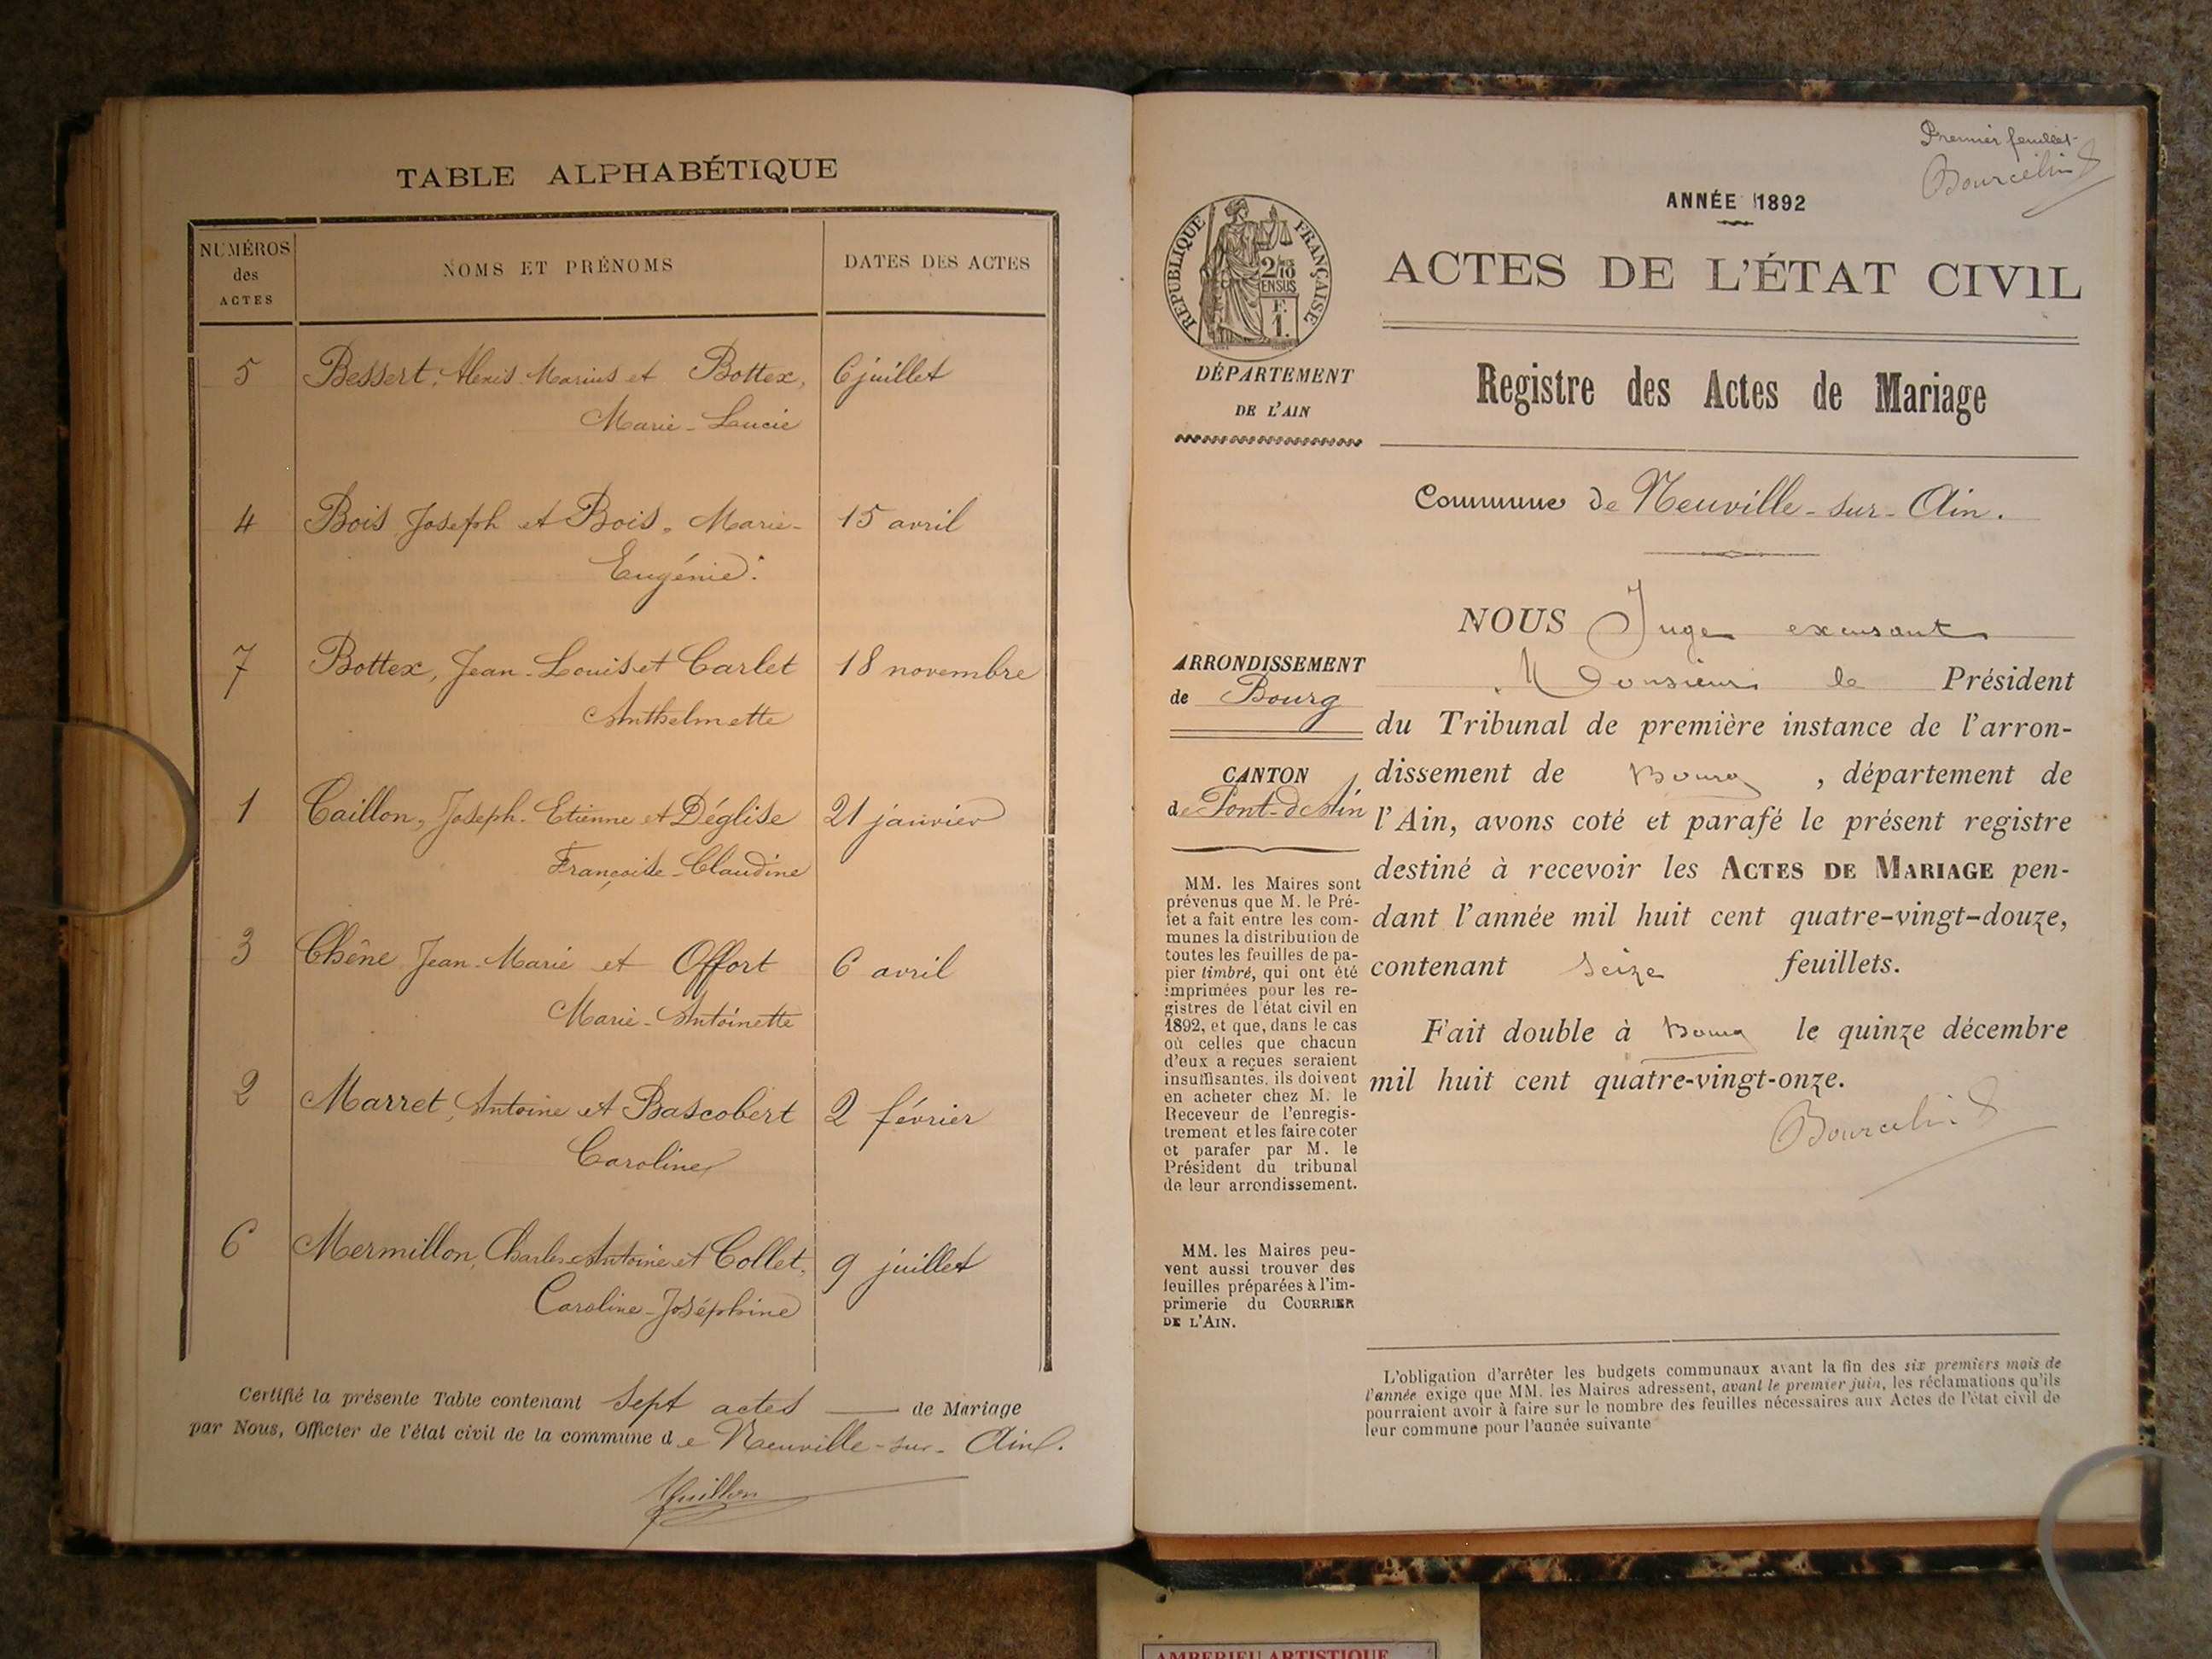 TABLE ALPHABÉTIQUE
NUMÉROS
des
ACTES
NOMS ET PRÉNOMS
DATES DES ACTES
5 Bessert, Alexis Marius et Bottex, 6 juillet
Marie-Lucie
4 Bois Joseph et Bois, Marie- 15 avril
Eugénie.
7 Bottex, Jean-Louis et Carlet 18 novembre
Anthelmette
1 Caillon, Joseph-Etienne et Déglise 21 janvier
Françoise-Claudine
3 Chêne Jean-Marie et Offort 6 avril
Marie-Antoinette
2 Marret, Antoine et Bascobert 2 février
Caroline
6 Mermillon, Charles Antoine et Collet, 9 juillet
Caroline-Joséphine
Certifié la présente Table contenant Sept actes — de Mariage
par Nous, Officier de l'état civil de la commune de Neuville-sur-Ain.
Premier feuillet
Bourcelin
ANNÉE 1892
RÉPUBLIQUE FRANÇAISE
2/10
EN SUS
F.
1.
ACTES DE L'ÉTAT CIVIL
DÉPARTEMENT
DE L'AIN
Registre des Actes de Mariage
Commune de Neuville-sur-Ain.
ARRONDISSEMENT
de Bourg
CANTON
de Pont-d'Ain
MM. les Maires sont
prévenus que M. le Pré-
fet a fait entre les com-
munes la distribution de
toutes les feuilles de pa-
pier timbré, qui ont été
imprimées pour les re-
gistres de l'état civil en
1892, et que, dans le cas
où celles que chacun
d'eux a reçues seraient
insuffisantes, ils doivent
en acheter chez M. le
Receveur de l'enregis-
trement et les faire coter
et parafer par M. le
Président du tribunal
de leur arrondissement.
MM. les Maires peu-
vent aussi trouver des
feuilles préparées à l'im-
primerie du COURRIER
DE L'AIN.
NOUS Juge excusant
Monsieur le Président
du Tribunal de première instance de l'arron-
dissement de Bourg, département de
l'Ain, avons coté et parafé le présent registre
destiné à recevoir les ACTES DE MARIAGE pen-
dant l'année mil huit cent quatre-vingt-douze,
contenant seize feuillets.
Fait double à Bourg le quinze décembre
mil huit cent quatre-vingt-onze.
Bourcelin
L'obligation d'arrêter les budgets communaux avant la fin des six premiers mois de
l'année exige que MM. les Maires adressent, avant le premier juin, les réclamations qu'ils
pourraient avoir à faire sur le nombre des feuilles nécessaires aux Actes de l'état civil de
leur commune pour l'année suivante
AMBERIEU ARTISTIQUE